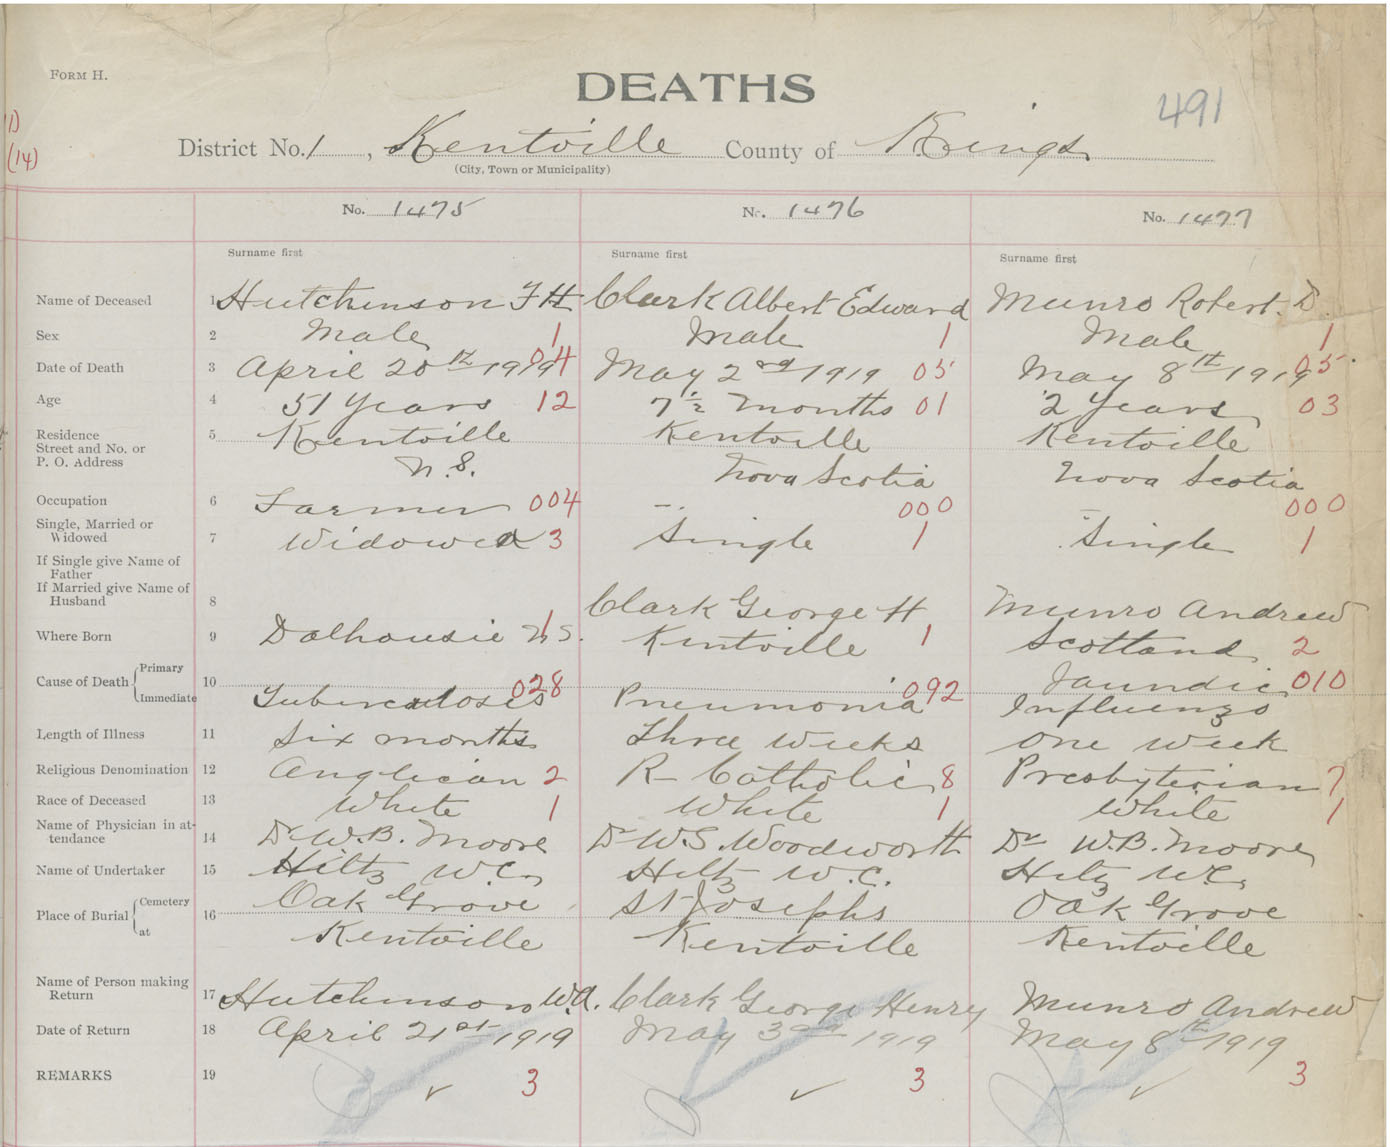 FORM H.
DEATHS
491
1)
(14)
District No. 1, Kentville County of Kings
(City, Town or Municipality)
No. 1475 No. 1476 No. 1477
Surname first Surname first Surname first
Name of Deceased 1 Hutchinson F H Clark Albert Edward Munro Robert. D.
Sex 2 Male 1 Male 1 Male 1
Date of Death 3 April 20th 1919 04 May 2nd 1919 05 May 8th 1919 05
Age 4 51 Years 12 7 1/2 months 01 2 Years 03
Residence 5 Kentville Kentville Kentville
Street and No. or
P. O. Address N.S. Nova Scotia Nova Scotia
Occupation 6 Farmer 004 — 000 — 000
Single, Married or
Widowed 7 Widowed 3 Single 1 Single 1
If Single give Name of
Father
If Married give Name of
Husband 8 Clark George H Munro Andrew
Where Born 9 Dalhousie N.S. 1 Kentville 1 Scotland 2
Cause of Death Primary 10 028 092 Jaundice 010
Immediate Tuberculosis Pneumonia Influenza
Length of Illness 11 Six months Three weeks One week
Religious Denomination 12 Anglican 2 R- Catholic 8 Presbyterian 7
Race of Deceased 13 White 1 White 1 White 1
Name of Physician in at-
tendance 14 Dr W.B. Moore Dr W.S. Woodworth Dr W.B. Moore
Name of Undertaker 15 Hiltz W.C. Hiltz W.C. Hiltz W.C.
Place of Burial Cemetery 16 Oak Grove St Josephs Oak Grove
at Kentville Kentville Kentville
Name of Person making
Return 17 Hutchinson W.A. Clark George Henry Munro Andrew
Date of Return 18 April 21st 1919 May 3rd 1919 May 8th 1919
REMARKS 19 ✓ 3 ✓ 3 ✓ 3